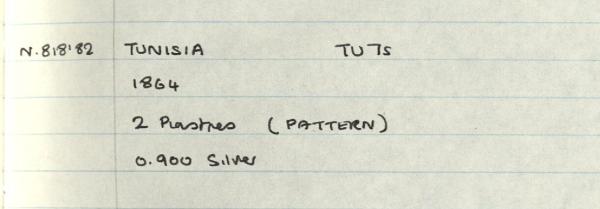 N.818'82 TUNISIA TU 75
1864
2 Piastres (PATTERN)
0.900 Silver